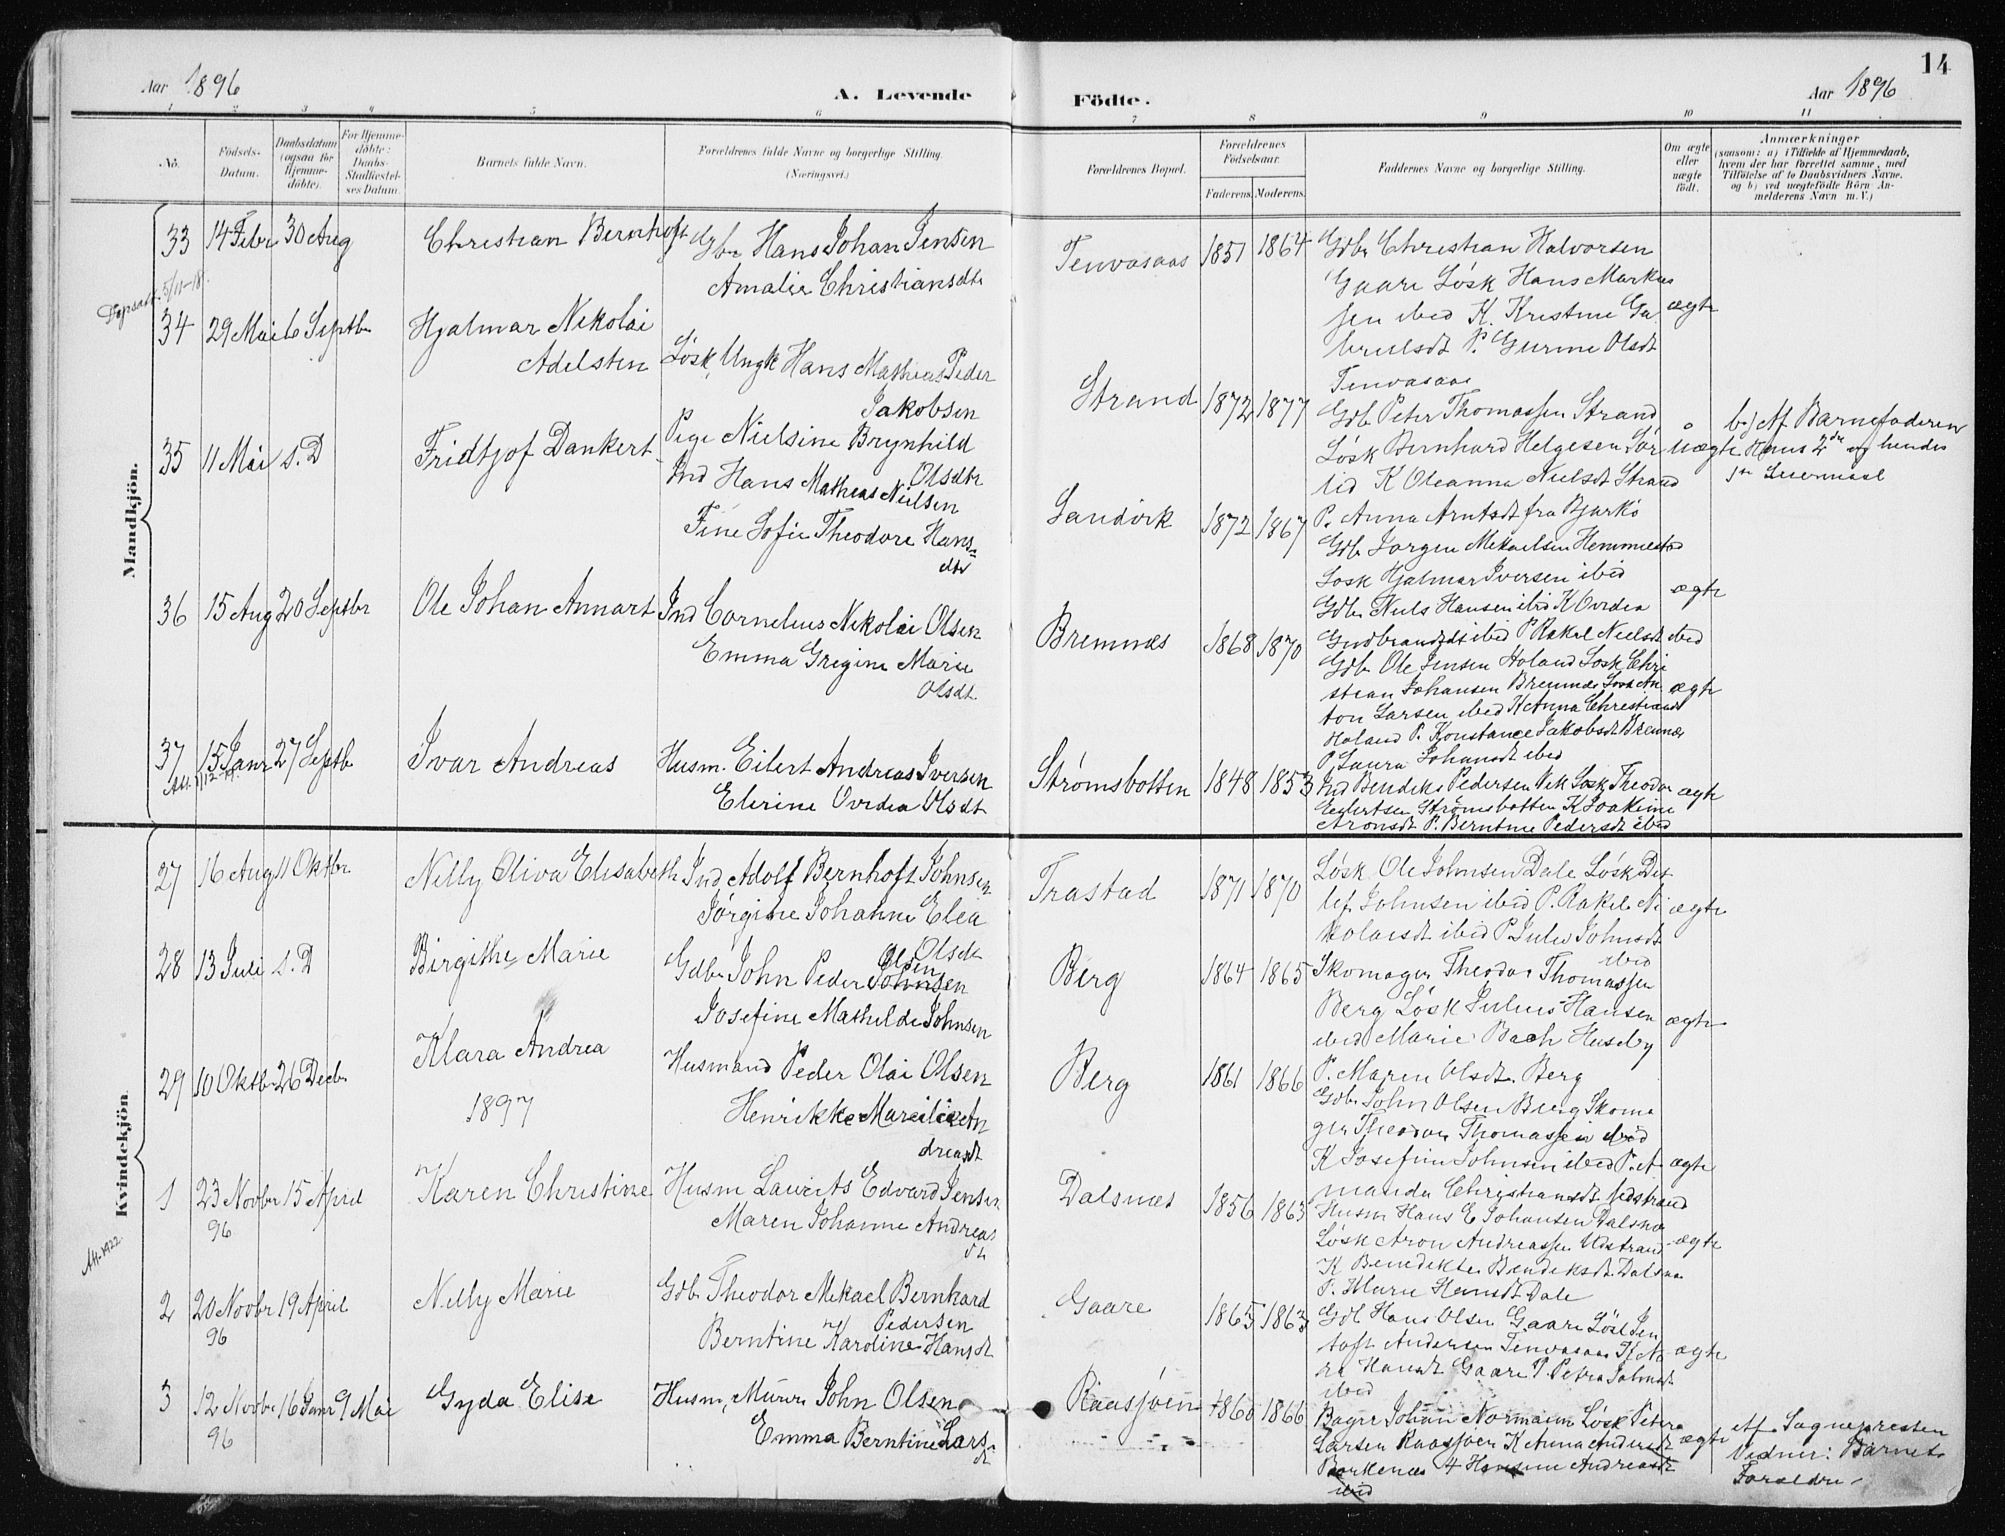 14
Aar 1896
A. Levende Födte.
Aar 1896
1 2 3 4 5 6 7 8 9 10 11
No.
Födsels-Datum.
Daabsdatum (ogsaa for Hjemme-döbte).
For Hjemme-döbte: Daabs-Stadfæstel-ses Datum.
Barnets fulde Navn.
Forældrenes fulde Navne og borgerlige Stilling.
(Næringsvei.)
Forældrenes Bopæl.
Forældrenes Födselsaar.
Faderens. Moderens.
Faddernes Navne og borgerlige Stilling.
Om ægte eller uægte födt.
Anmærkninger
(saasom: a) i Tilfælde af Hjemmedaab, hvem der har forrettet samme, med Tilföielse af to Daabsvidners Navne. og b) ved uægtefödte Börn An-melderens Navn m. V.)
Mandkjön.
33 14 Febr 30 Aug Christian Bernhoft Gbr Hans Johan Jensen
Amalie Christiansdtr
Tenvasaas 1851 1864
Gdbr Christian Halvorsen
Gaare Løsk Hans Markus
sen ibid K. Kristine Ga
brielsdt P. Gurine Olsdt
Tenvasaas
ægte
34 29 Mai 6 Septbr Hjalmar Nikolai
Adelsten
Løsk, Ungk Hans Mathias Peder
Jakobsen
Pige Nielsine Brynhild
Olsdtr
Strand 1872 1877
Gdb Peter Thomassen Strand
Løsk Bernhard Helgesen Sør
K Oleanna Nielsdt Strand
P. Anna Arntsdt fra Bjarkö
uægte
b) Af Barnefaderen
Hans 2de og hendes
1ste Leiermaal
35 11 Mai s. D Fridtjof Dankert
Ind Hans Mathias Nielsen
Fine Sofie Theodore Hans-
dtr
Sandvik 1872 1867
Gdbr Jørgen Mikaelsen Hemmestad
Løsk Hjalmar Iversen ibid
Gdbr Niels Hansen ibid K Ovidia
Gudbrandsdt ibid P Rakel Nielsdt ibid
ægte
36 15 Aug 20 Septbr Ole Johan Annart Ind Cornelius Nikolai Olsen
Emma Gregine Marie
Olsdt.
Bremnæs 1868 1870
Gdbr Ole Jensen Holand Løsk Chri
stian Johansen Bremnæs Løsk An
ton Larsen ibid K Anna Christiansdt
Holand P. Konstance Jakobsdt Bremnæs
P. Laura Johansdt ibid
ægte
37 15 Janr 27 Septbr Ivar Andreas Husm. Eilert Andreas Iversen
Elerine Ovidia Olsdt
Strømsbotten 1848 1853
Ind Bendiks Pedersen Vik Løsk Theodor
Eilertsen Strømsbotten K Joakime
Aronsdt P. Berntine Pedersdt ibid
ægte
Kvindekjön.
27 16 Aug 11 Oktbr Nelly Oliva Elisabeth Ind Adolf Bernhoft Johnsen
Jørgine Johanne Elea
Olsdtr
Trastad 1871 1870
Løsk Ole Johnsen Dale Løsk Det
lef Johnsen ibid P. Rakel Ni
kolaisdt ibid P Julie Johnsdt
ibid
ægte
28 13 Juli s. D Birgithe Marie Gdbr John Peder Johnsen Olsen
Josefine Mathilde Johnsen
Berg 1864 1865
Skomager Theodor Thomassen
Berg Løsk Julius Hansen
ibid Marie Bach Huseby
P. Maren Olsdt. Berg
ægte
29 10 Oktbr 26 Decbr Klara Andrea Husmand Peder Olai Olsen
Henrikke Mareilie An
dreasdt
Berg 1861 1866
Gdbr John Olsen Berg Skoma
ger Theodor Thomassen ibid
K Josefine Johnsen ibid P. A
manda Christiansdt
ægte
1897
1 23 Novbr 96 15 April Karen Christine Husm Laurits Edvard Jensen
Maren Johanne Andreas
dt
Dalsnæs 1856 1863
Husm Hans E Johansen Dalsnæs
Løsk Aron Andreassen Utstrand
K Benedikte Bendiksdt Dalsnæs
P. Marie Hansdt Dale
ægte
2 20 Novbr 96 19 April Nelly Marie Gdb. Theodor Mikael Bernhard
Pedersen
Berntine Karoline Hansdt
Gaare 1865 1863
Gdb Hans Olsen Gaare Løsk Jen
toft Andersen Tenvasaas K No
ra Hansdt Gaare P Petra Johnsdt
ibid
ægte
3 12 Novbr 96 16 Janr 9 Mai Gyda Elise Husm, Murer John Olsen
Emma Berntine Lars-
dt
Raasjøen 1860 1866
Bager Johan Normann Løsk Peter
Larsen Raasjøen K Anna Andersdt
Borkenæs Andreasdt
ibid
ægte
Af Sognepresten
Vidner: Barnets
Forældre